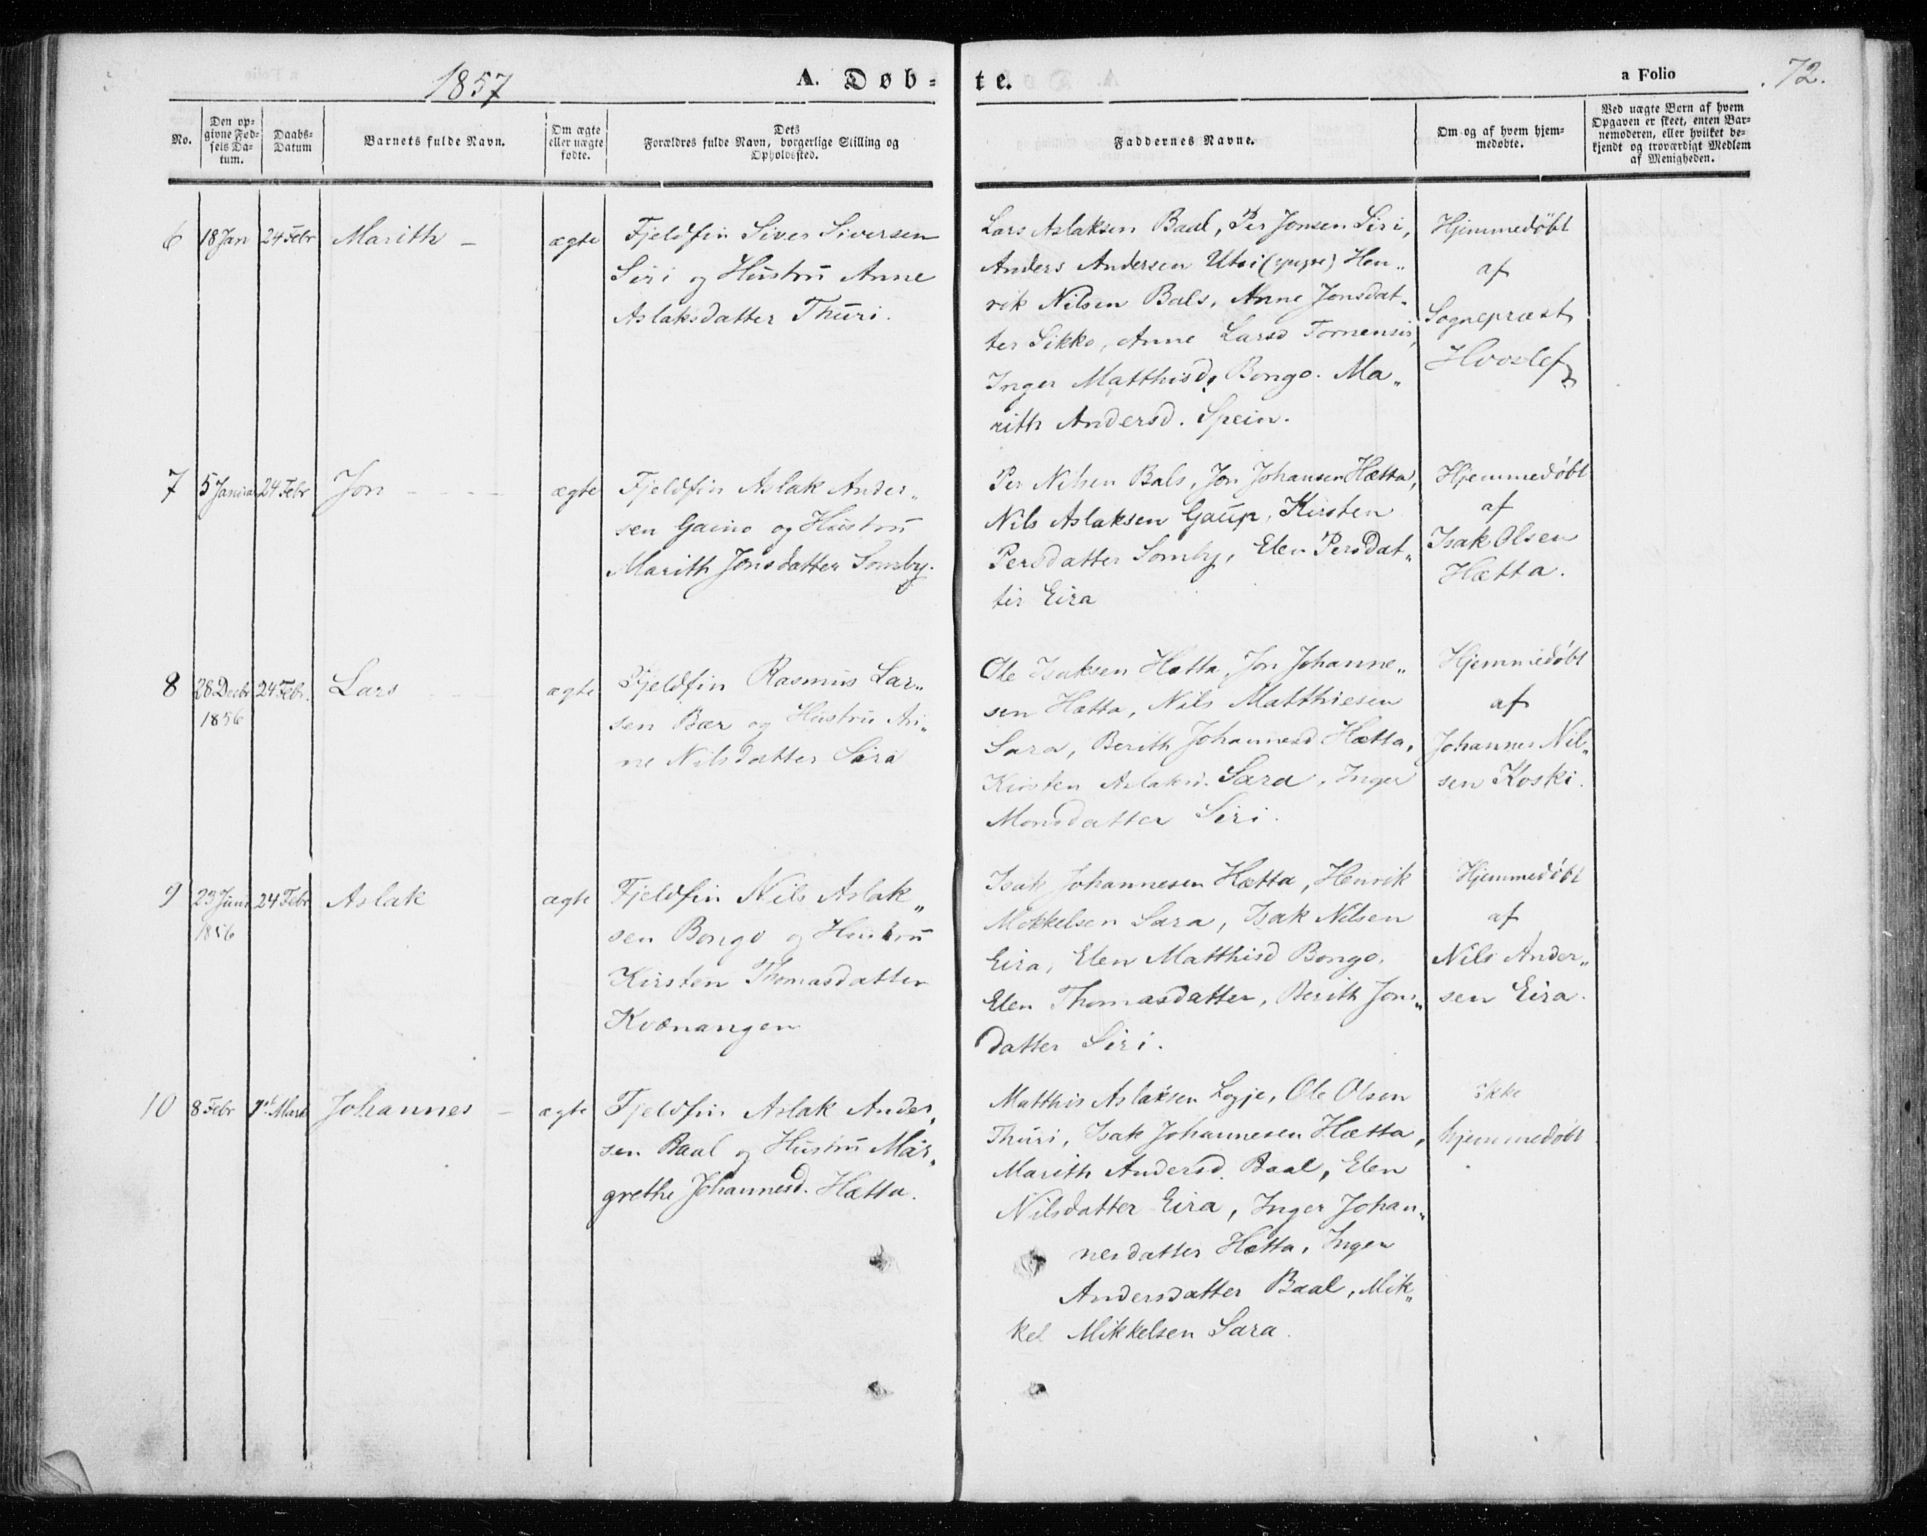 1857
A. Døb-
te.
a Folio
72.
No.
Den op-
givne Fød-
sels Da-
tum.
Daabs-
Datum
Barnets fulde Navn.
Om ægte
eller uægte
fødte.
Dets
Forældres fulde Navn, borgerlige Stilling og
Opholdssted.
Faddernes Navne.
Om og af hvem hjem-
medøbte.
Ved uægte Børn af hvem
Opgaven er skeet, enten Bar-
nemoderen, eller hvilket be-
kjendt og troværdigt Medlem
af Menigheden.
6
18 Jan
24 Febr
Marith –
ægte
Fjeldfin Siver Siversen
Siri og Hustru Anne
Aslaksdatter Thuri.
Lars Aslaksen Baal, Per Jonsen Siri,
Anders Andersen Utsi (yngre) Hen„
rik Nilsen Bals, Anne Jonsdat„
ter Sikko, Anne Larsd Tornensis,
Inger Matthisd, Bongo. Ma„
rith Andersd. Spein.
Hjemmedøbt
af
Sognepræst
Hvoslef
7
5 Januar
24 Febr
Jon – – –
ægte
Fjeldfin Aslak Ander„
sen Gaino og Hustru
Marith Jonsdatter Somby.
Per Nilsen Bals, Jon Johansen Hætta,
Nils Aslaksen Gaup, Kirsten
Persdatter Somby, Elen Persdat„
ter Eira
Hjemmedøbt
af
Isak Olsen
Hætta.
8
28 Decbr
1856
24 Febr.
Lars
ægte
Fjeldfin Rasmus Lar„
sen Bær og Hustru An„
ne Nilsdatter Sara
Ole Isaksen Hætta, Jon Johanne„
sen Hætta, Nils Matthiesen
Sara, Berith Johannesd Hætta,
Kirsten Aslaksd. Sara, Inger
Monsdatter Siri.
Hjemmedøbt
af
Johannes Nil„
sen Koski.
9
23 Juni
1856
24 Febr
Aslak
ægte
Fjeldfin Nils Aslak„
sen Bongo og Hustru
Kirsten Thomasdatter
Kvænangen
Isak Johannesen Hætta, Henrik
Mikkelsen Sara, Isak Nilsen
Eira, Elen Matthisd Bongo,
Elen Thomasdatter, Berith Jons„
datter Siri.
Hjemmedøbt
af
Nils Ander„
sen Eira.
10
8 Febr
1st Marts
Johannes –
ægte
Fjeldfin Aslak Ander„
sen Baal og Hustru Mar„
grethe Johannesd. Hætta.
Matthis Aslaksen Logje, Ole Olsen
Thuri, Isak Johannesen Hætta,
Marith Andersd. Baal, Elen
Nilsdatter Eira, Inger Johan„
nesdatter Hætta, Inger
Andersdatter Baal, Mik„
kel Mikkelsen Sara.
ikke
hjemmedøbt